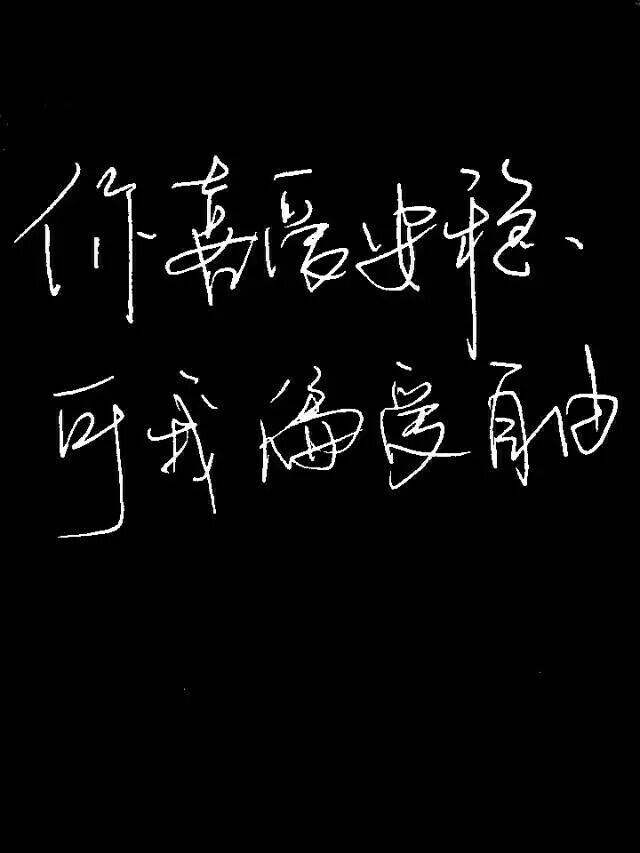 你喜爱安稳、
可我偏爱自由